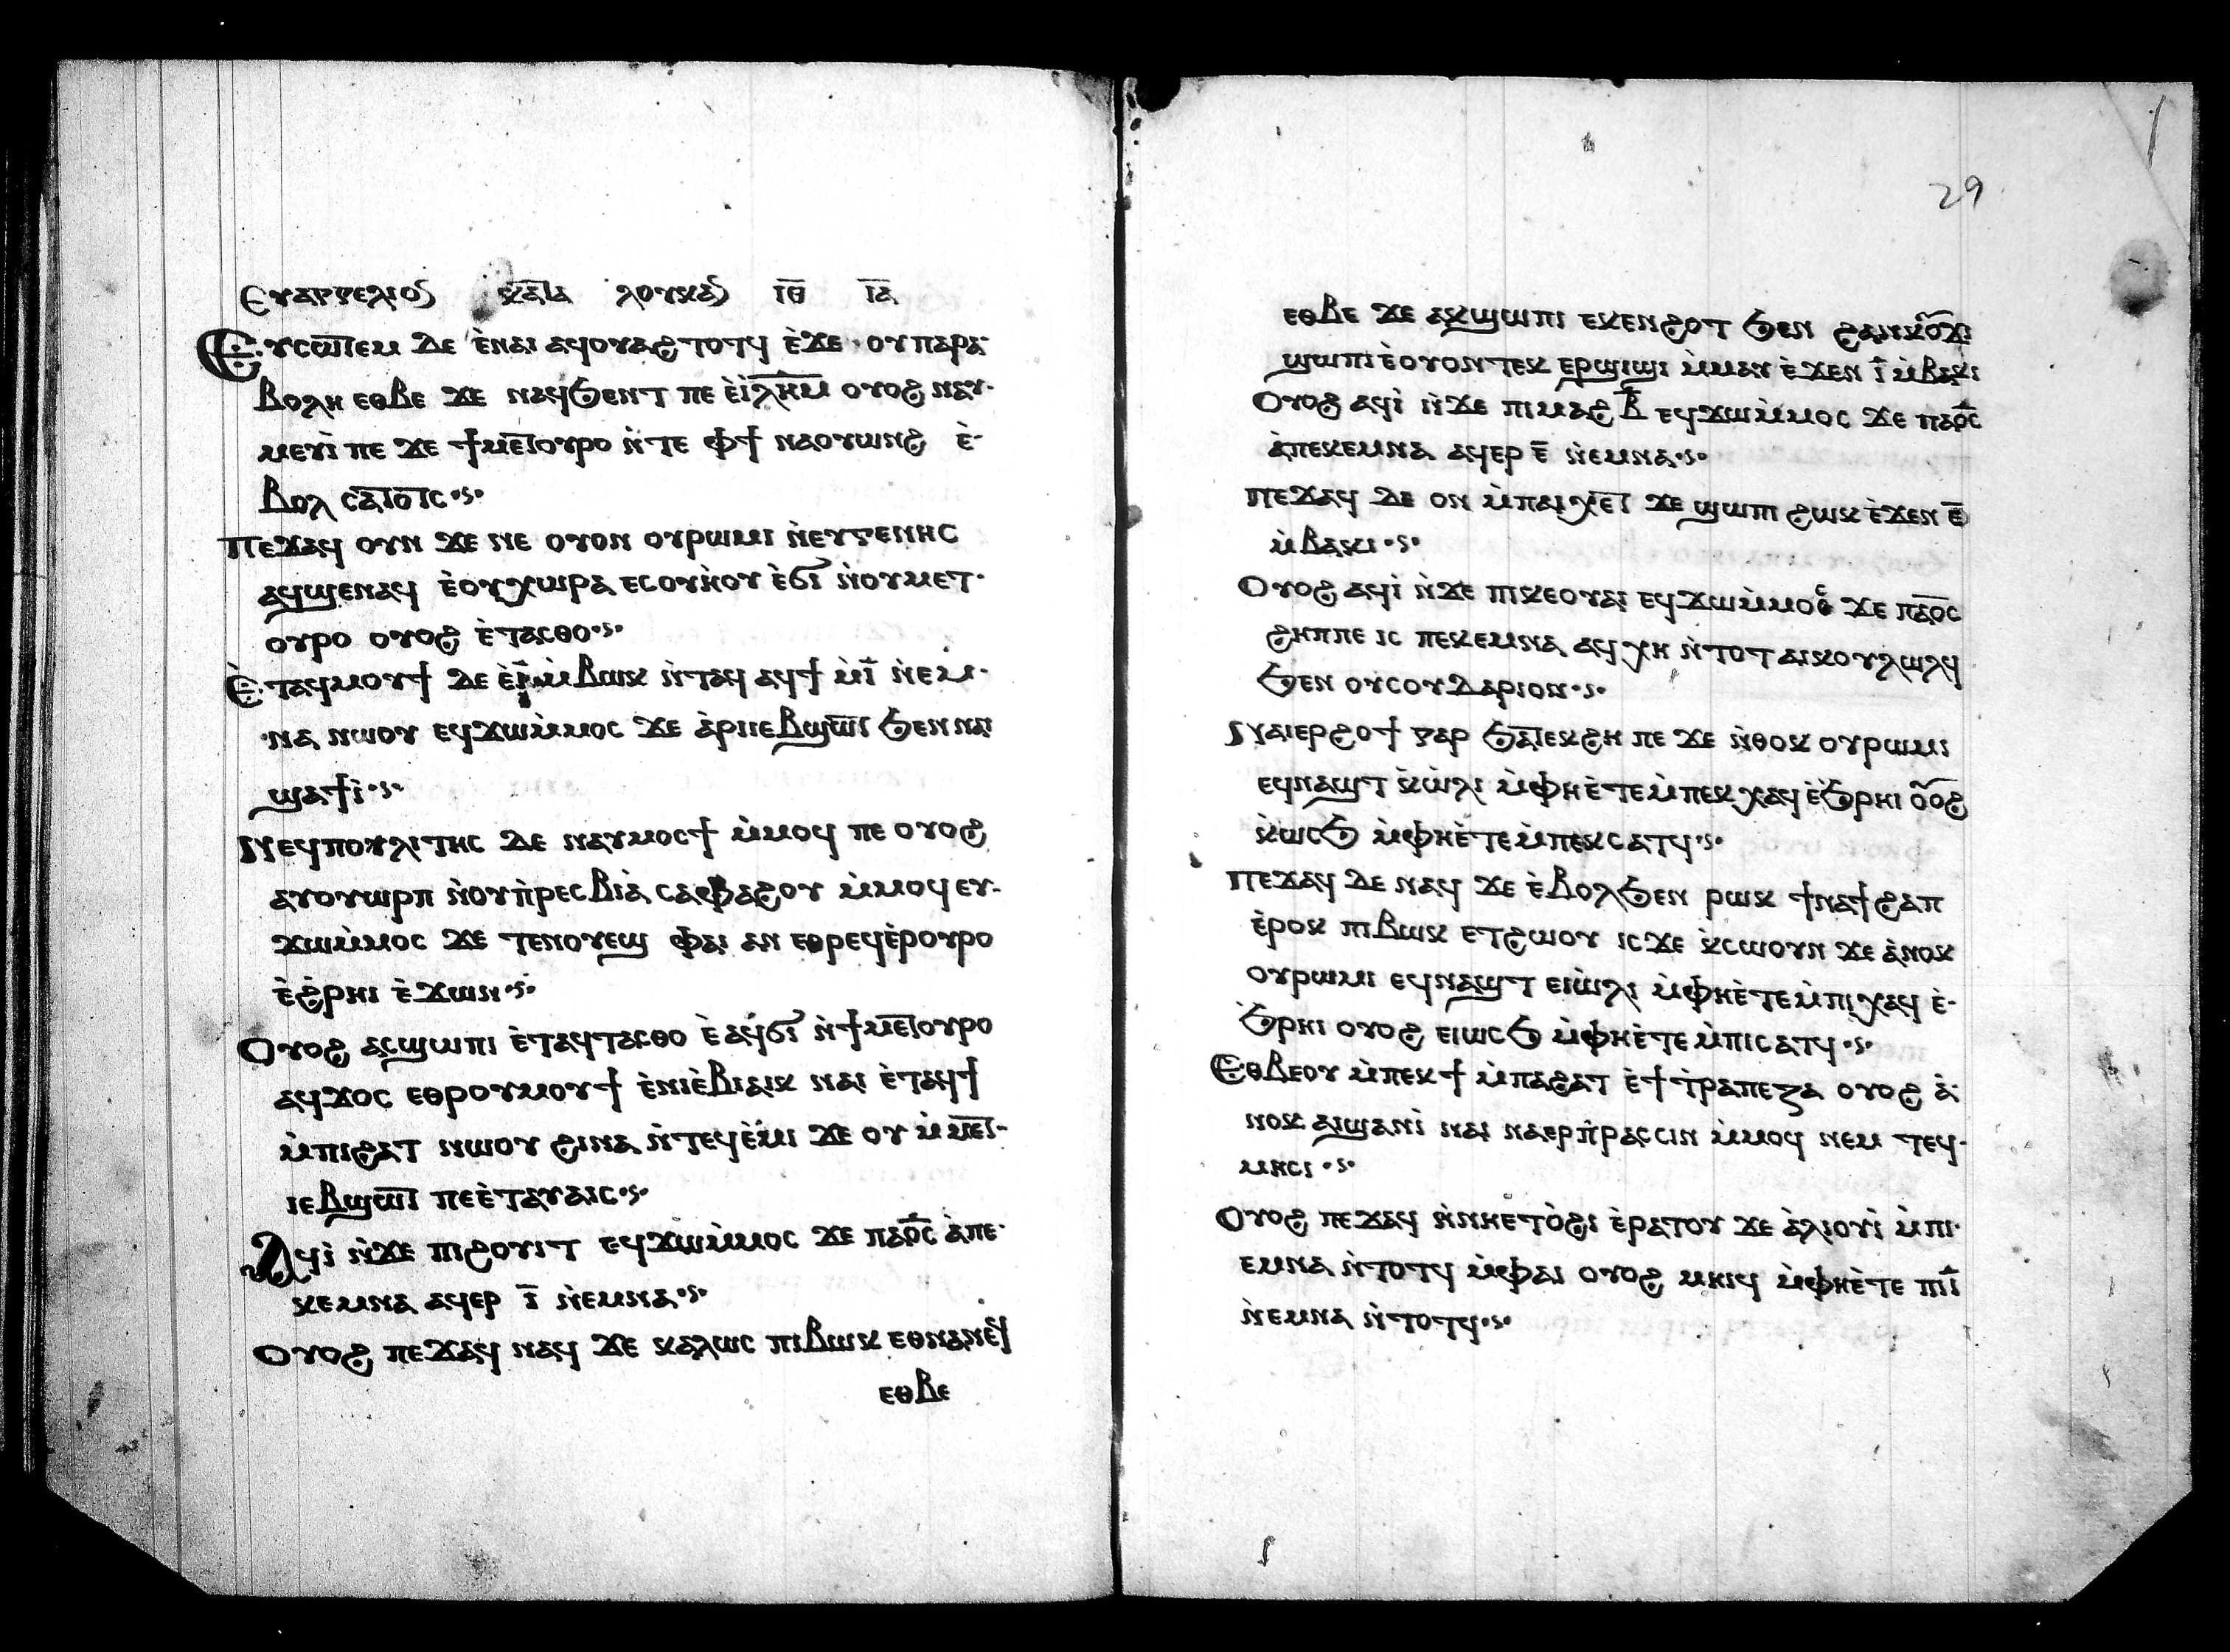 Ⲉⲩⲁⲅⲅⲉⲗⲓⲟⲛ ⲕⲁⲧⲁ ⲗⲟⲩⲕⲁⲛ ⲓ̅ⲑ̅ ⲓ̅ⲁ̅
Ⲉⲩⲥⲱⲧⲉⲙ ⲇⲉ ⲉ̀ⲛⲁⲓ ⲁϥⲟⲩⲁϩⲧⲟⲧϥ ⲉ̀ϫⲉ ⲟⲩⲡⲁⲣⲁ-
ⲃⲟⲗⲏ ⲉⲑⲃⲉ ϫⲉ ⲛⲁϥϧⲉⲛⲧ ⲡⲉ ⲉ̀ⲓ̅ⲗ̅ⲏ̅ⲙ̅ ⲟⲩⲟϩ ⲛⲁⲩ-
ⲙⲉⲩⲓ̀ ⲡⲉ ϫⲉ ϯⲙⲉⲧⲟⲩⲣⲟ ⲛ̀ⲧⲉ ⲫϯ ⲛⲁⲟⲩⲱⲛϩ ⲉ̀-
ⲃⲟⲗ ⲥⲁⲧⲟⲧⲥ
Ⲡⲉϫⲁϥ ⲟⲩⲛ ϫⲉ ⲛⲉ ⲟⲩⲟⲛ ⲟⲩⲣⲱⲙⲓ ⲛ̀ⲉⲩⲅⲉⲛⲏⲥ
ⲁϥϣⲉⲛⲁϥ ⲉ̀ⲟⲩⲭⲱⲣⲁ ⲉⲥⲟⲩⲏ̀ⲟⲩ ⲉ̀ϭⲓ ⲛ̀ⲟⲩⲙⲉⲧ-
ⲟⲩⲣⲟ ⲟⲩⲟϩ ⲉ̀ⲧⲁⲥⲑⲟ
Ⲉ̀ⲧⲁϥⲙⲟⲩϯ ⲇⲉ ⲉ̀ⲓ̅ ⲙ̀ⲃⲱⲕ ⲛ̀ⲧⲁϥ ⲁϥϯ ⲙ̀ⲓ̅ ⲛ̀ⲉⲙ-
ⲛⲁ ⲛⲱⲟⲩ ⲉϥϫⲱⲙ̀ⲙⲟⲥ ϫⲉ ⲁ̀ⲣⲓⲓⲉⲃϣⲱⲧ ϧⲉⲛ ⲛⲁⲓ
ϣⲁϯⲓ̀
Ⲛⲉϥⲡⲟⲗⲓⲧⲏⲥ ⲇⲉ ⲛⲁⲩⲙⲟⲥϯ ⲙ̀ⲙⲟϥ ⲡⲉ ⲟⲩⲟϩ
ⲁⲩⲟⲩⲱⲣⲡ ⲛ̀ⲟⲩⲡ̀ⲣⲉⲥⲃⲓⲁ̀ ⲥⲁⲫⲁϩⲟⲩ ⲙ̀ⲙⲟϥ ⲉⲩ-
ϫⲱⲙ̀ⲙⲟⲥ ϫⲉ ⲧⲉⲛⲟⲩⲉϣ ⲫⲁⲓ ⲁⲛ ⲉⲑⲣⲉϥⲉ̀ⲣⲟⲩⲣⲟ
ⲉ̀ϩ̀ⲣⲏⲓ ⲉ̀ϫⲱⲛ
Ⲟⲩⲟϩ ⲁⲥϣⲱⲡⲓ ⲉ̀ⲧⲁϥⲧⲁⲥⲑⲟ ⲉ̀ⲁϥϭⲓ ⲛ̀ϯⲙⲉⲧⲟⲩⲣⲟ
ⲁϥϫⲟⲥ ⲉⲑⲣⲟⲩⲙⲟⲩϯ ⲉ̀ⲛⲓⲉ̀ⲃⲓⲁⲓⲕ ⲛⲁⲓ ⲉ̀ⲧⲁϥϯ
ⲙ̀ⲡⲓϩⲁⲧ ⲛⲱⲟⲩ ϩⲓⲛⲁ ⲛ̀ⲧⲉϥⲉ̀ⲙⲓ ϫⲉ ⲟⲩ ⲙ̀ⲙⲉⲧ-
ⲓⲉⲃϣⲱⲧ ⲡⲉⲉ̀ⲧⲁⲩⲁⲓⲥ
Ⲁϥⲓ̀ ⲛ̀ϫⲉ ⲡⲓϩⲟⲩⲓⲧ ⲉϥϫⲱⲙ̀ⲙⲟⲥ ϫⲉ ⲡⲁϭⲥ ⲁ̀ⲡⲉ-
ⲕⲉⲙⲛⲁ ⲁϥⲉⲣ ⲓ̅ ⲛ̀ⲉⲙⲛⲁ
Ⲟⲩⲟϩ ⲡⲉϫⲁϥ ⲛⲁϥ ϫⲉ ⲕⲁⲗⲱⲥ ⲡⲓⲃⲱⲕ ⲉⲑⲛⲁⲛⲉϥ
ⲉⲑⲃⲉ
29
ⲉⲑⲃⲉ ϫⲉ ⲁⲕϣⲱⲡⲓ ⲉⲕⲉⲛϩⲟⲧ ϧⲉⲛ ϩⲁⲛⲕⲟⲩϫⲓ
ϣⲱⲡⲓ ⲉ̀ⲟⲩⲟⲛⲧⲉⲕ ⲉⲣϣⲓϣⲓ ⲙ̀ⲙⲁⲩ ⲉ̀ϫⲉⲛ ⲓ̅ ⲙ̀ⲃⲁⲕⲓ
Ⲟⲩⲟϩ ⲁϥⲓ̀ ⲛ̀ϫⲉ ⲡⲓⲙⲁϩⲃ̅ ⲉϥϫⲱⲙ̀ⲙⲟⲥ ϫⲉ ⲡⲁϭⲥ
ⲁ̀ⲡⲉⲕⲉⲙⲛⲁ ⲁϥⲉⲣ ⲉ̅ ⲛ̀ⲉⲙⲛⲁ
Ⲡⲉϫⲁϥ ⲇⲉ ⲟⲛ ⲙ̀ⲡⲁⲓⲭⲉⲧ ϫⲉ ϣⲱⲡⲓ ϩⲱⲕ ⲉ̀ϫⲉⲛ ⲉ̅
ⲙ̀ⲃⲁⲕⲓ
Ⲟⲩⲟϩ ⲁϥⲓ̀ ⲛ̀ϫⲉ ⲡⲓⲕⲉⲟⲩⲁⲓ ⲉϥϫⲱⲙ̀ⲙⲟⲥ ϫⲉ ⲡⲁϭⲥ
ϩⲏⲡⲡⲉ ⲓⲥ ⲡⲉⲕⲉⲙⲛⲁ ⲁϥⲭⲏ ⲛ̀ⲧⲟⲧ ⲁⲓⲕⲟⲩⲗⲱⲗϥ
ϧⲉⲛ ⲟⲩⲥⲟⲩⲇⲁⲣⲓⲟⲛ
Ⲛⲁⲓⲉⲣϩⲟϯ ⲅⲁⲣ ϧⲁⲧⲉⲕϩⲏ ⲡⲉ ϫⲉ ⲛ̀ⲑⲟⲕ ⲟⲩⲣⲱⲙⲓ
ⲉϥⲛⲁϣⲧ ⲕ̀ⲱ̀ⲗⲓ ⲙ̀ⲫⲏⲉ̀ⲧⲉⲙ̀ⲡⲉⲕⲭⲁϥ ⲉ̀ϧ̀ⲣⲏⲓ ⲟⲩⲟϩ
ⲕ̀ⲱⲥϧ ⲙ̀ⲫⲏⲉ̀ⲧⲉⲙ̀ⲡⲉⲕⲥⲁⲧϥ
Ⲡⲉϫⲁϥ ⲇⲉ ⲛⲁϥ ϫⲉ ⲉ̀ⲃⲟⲗϧⲉⲛ ⲣⲱⲕ ϯⲛⲁϯϩⲁⲡ
ⲉ̀ⲣⲟⲕ ⲡⲓⲃⲱⲕ ⲉⲧϩⲱⲟⲩ ⲓⲥϫⲉ ⲕ̀ⲥⲱⲟⲩⲛ ϫⲉ ⲁ̀ⲛⲟⲕ
ⲟⲩⲣⲱⲙⲓ ⲉϥⲛⲁϣⲧ ⲉⲓⲱ̀ⲗⲓ ⲙ̀ⲫⲏⲉ̀ⲧⲉⲙ̀ⲡⲓⲭⲁϥ ⲉ̀-
ϧ̀ⲣⲏⲓ ⲟⲩⲟϩ ⲉⲓⲱⲥϧ ⲙ̀ⲫⲏⲉ̀ⲧⲉⲙ̀ⲡⲓⲥⲁⲧϥ
Ⲉⲑⲃⲉⲟⲩ ⲙ̀ⲡⲉⲕϯ ⲙ̀ⲡⲁϩⲁⲧ ⲉ̀ϯⲧ̀ⲣⲁⲡⲉⲍⲁ ⲟⲩⲟϩ ⲁ̀-
ⲛⲟⲕ ⲁⲓϣⲁⲛⲓ̀ ⲛⲁⲓ ⲛⲁⲉⲣⲡ̀ⲣⲁⲥⲥⲓⲛ ⲙ̀ⲙⲟϥ ⲛⲉⲙ ⲧⲉϥ-
ⲙⲏⲥⲓ
Ⲟⲩⲟϩ ⲡⲉϫⲁϥ ⲛ̀ⲛⲏⲉⲧⲟ̀ϩⲓ ⲉ̀ⲣⲁⲧⲟⲩ ϫⲉ ⲁ̀ⲗⲓⲟⲩⲓ̀ ⲙ̀ⲡⲓ-
ⲉⲙⲛⲁ ⲛ̀ⲧⲟⲧϥ ⲙ̀ⲫⲁⲓ ⲟⲩⲟϩ ⲙⲏⲓϥ ⲙ̀ⲫⲏⲉ̀ⲧⲉ ⲡⲓⲓ̅
ⲛ̀ⲉⲙⲛⲁ ⲛ̀ⲧⲟⲧϥ